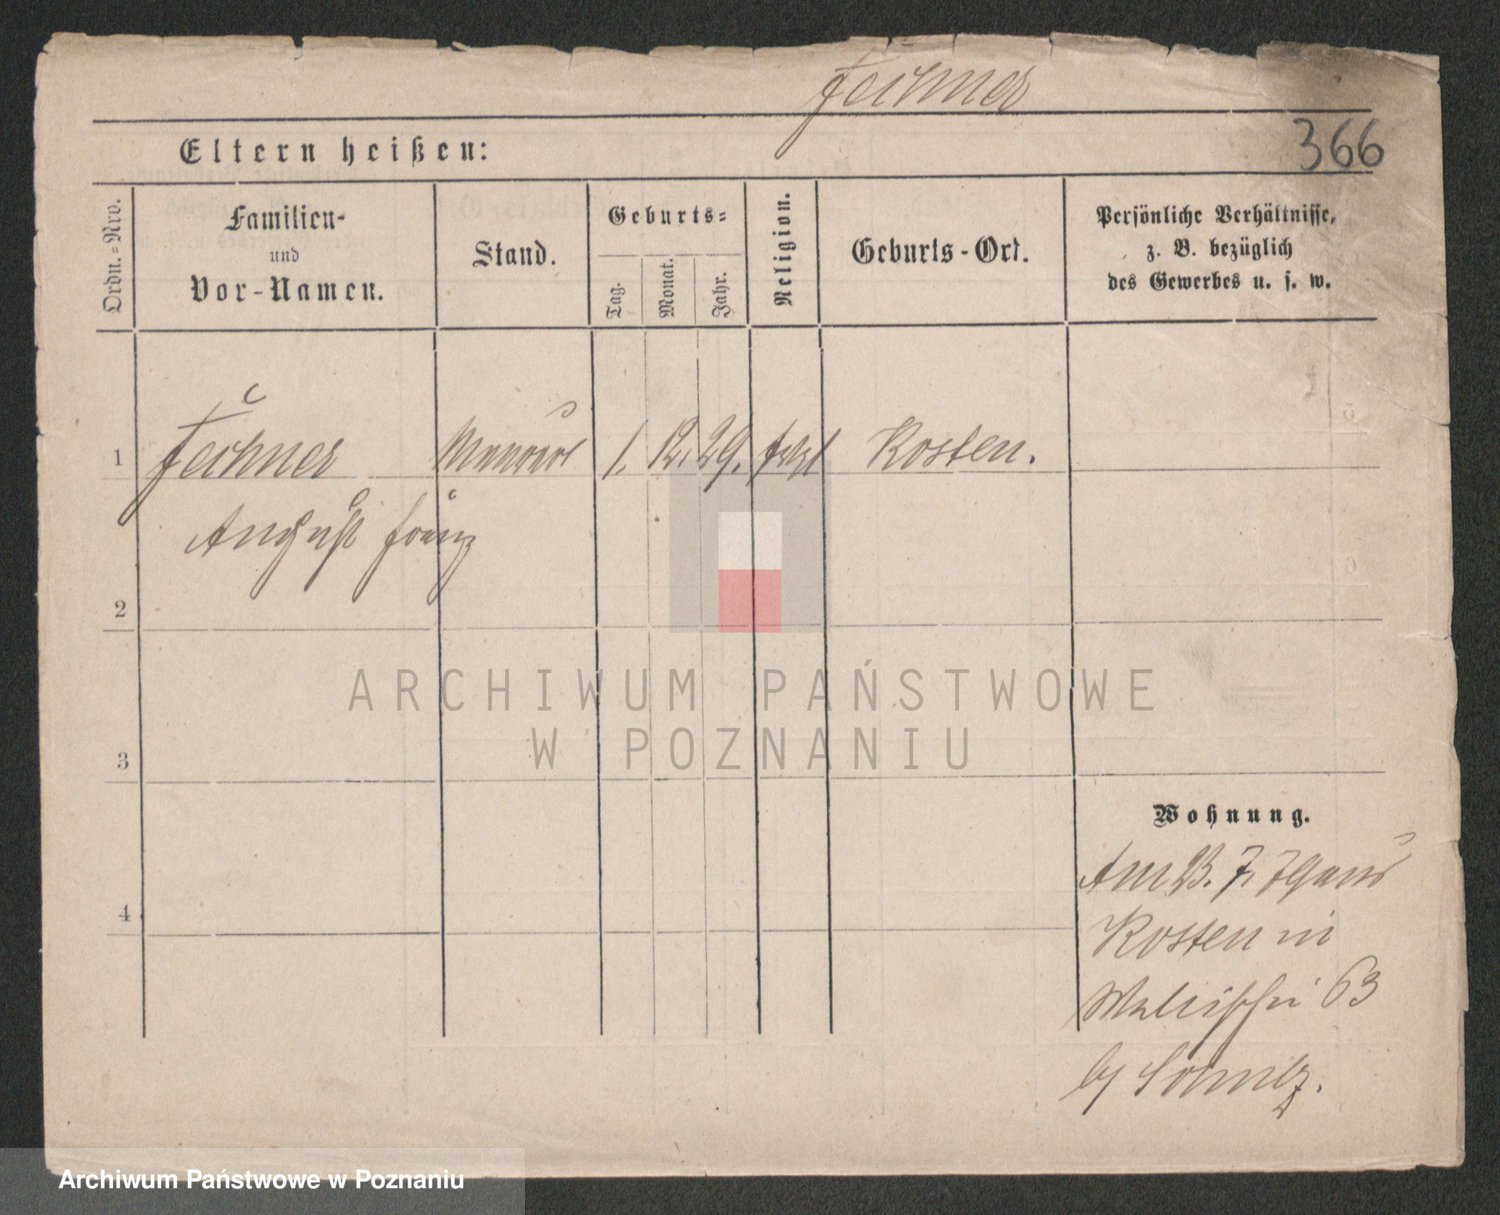 Fechner
366
Eltern heißen:
Ordn.-Nro.
Familien-
und
Vor-Namen.
Stand.
Geburts-
Tag.
Monat.
Jahr.
Religion.
Geburts-Ort.
Persönliche Verhältnisse,
z. B. bezüglich
des Gewerbes u. s. w.
1
Fechner
1. 12. 29.
Kosten.
August Franz
2
3
4
ARCHIWUM PAŃSTWOWE
W POZNANIU
Wohnung.
Am 13. 7. 79 aus
Kosten in
Wallischei 63
Archiwum Państwowe w Poznaniu